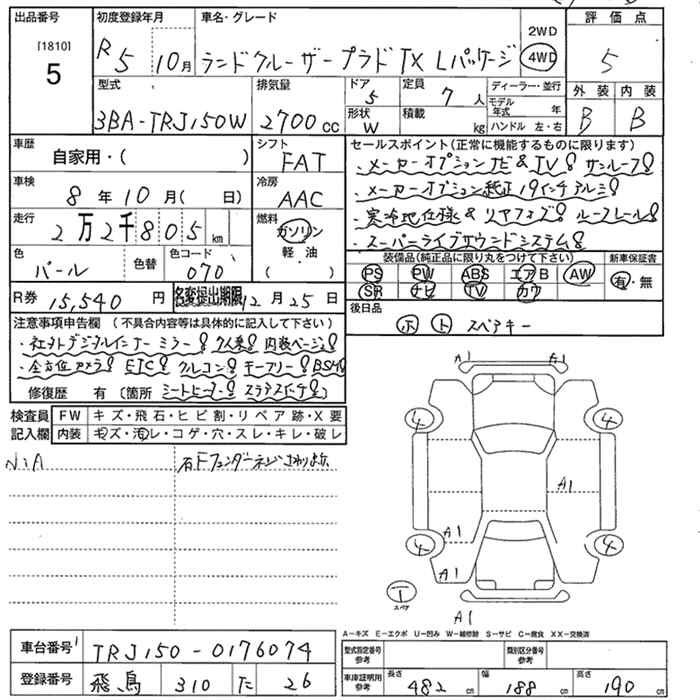 出品番号 初度登録年月 車名・グレード 2WD 評価点
[1810] 5 R5 10月 ランドクルーザープラド TX Lパッケージ 4WD 5
型式 排気量 ドア 定員 ディーラー・並行 外装 内装
3BA-TRJ150W 2700cc 5 7人 モデル年式 年 B B
形状 積載 ハンドル 左・右
W kg
車歴 シフト セールスポイント(正常に機能するものに限ります)
自家用・( ) FAT ・メーカーオプションナビ&TV! サンルーフ!
車検 冷房 ・メーカーオプション純正19インチアルミ!
8年10月( 日) AAC ・寒冷地仕様&リヤフォグ! ルーフレール!
走行 燃料 ・スーパーライブサウンドシステム!
2万2千805km ガソリン 装備品(純正品に限り丸をつけて下さい) 新車保証書
色 色替 色コード 軽油 PS PW ABS エアB AW 有・無
パール 070 ( ) SR ナビ TV カワ
R券 15,540円 名変提出期限 12月25日 後日品
ホ ト スペアキー
注意事項申告欄 (不具合内容等は具体的に記入して下さい)
・社外デジタルインナーミラー! 7人乗! 内装ベージュ!
・全方位カメラ! ETC! クルコン! キーフリー! BSM!
修復歴 有 〔箇所 シートヒーター!
検査員 FW キズ・飛石・ヒビ割・リペア跡・X要
記入欄 内装 キズ・汚レ・コゲ・穴・スレ・キレ・破レ
A1 A1
N:A 右Fフェンダーネジさわり有
4 4
A1
A1
4 4
A1
1
スペア
A1
A-キズ E-エクボ U-凹み W-補修跡 S-サビ C-腐食 XX-交換済
車台番号 TRJ150-0176074 型式指定番号 参考 類別区分番号 参考
登録番号 飛鳥 310 た 26 車庫証明用 参考 長さ 482cm 幅 188cm 高さ 190cm